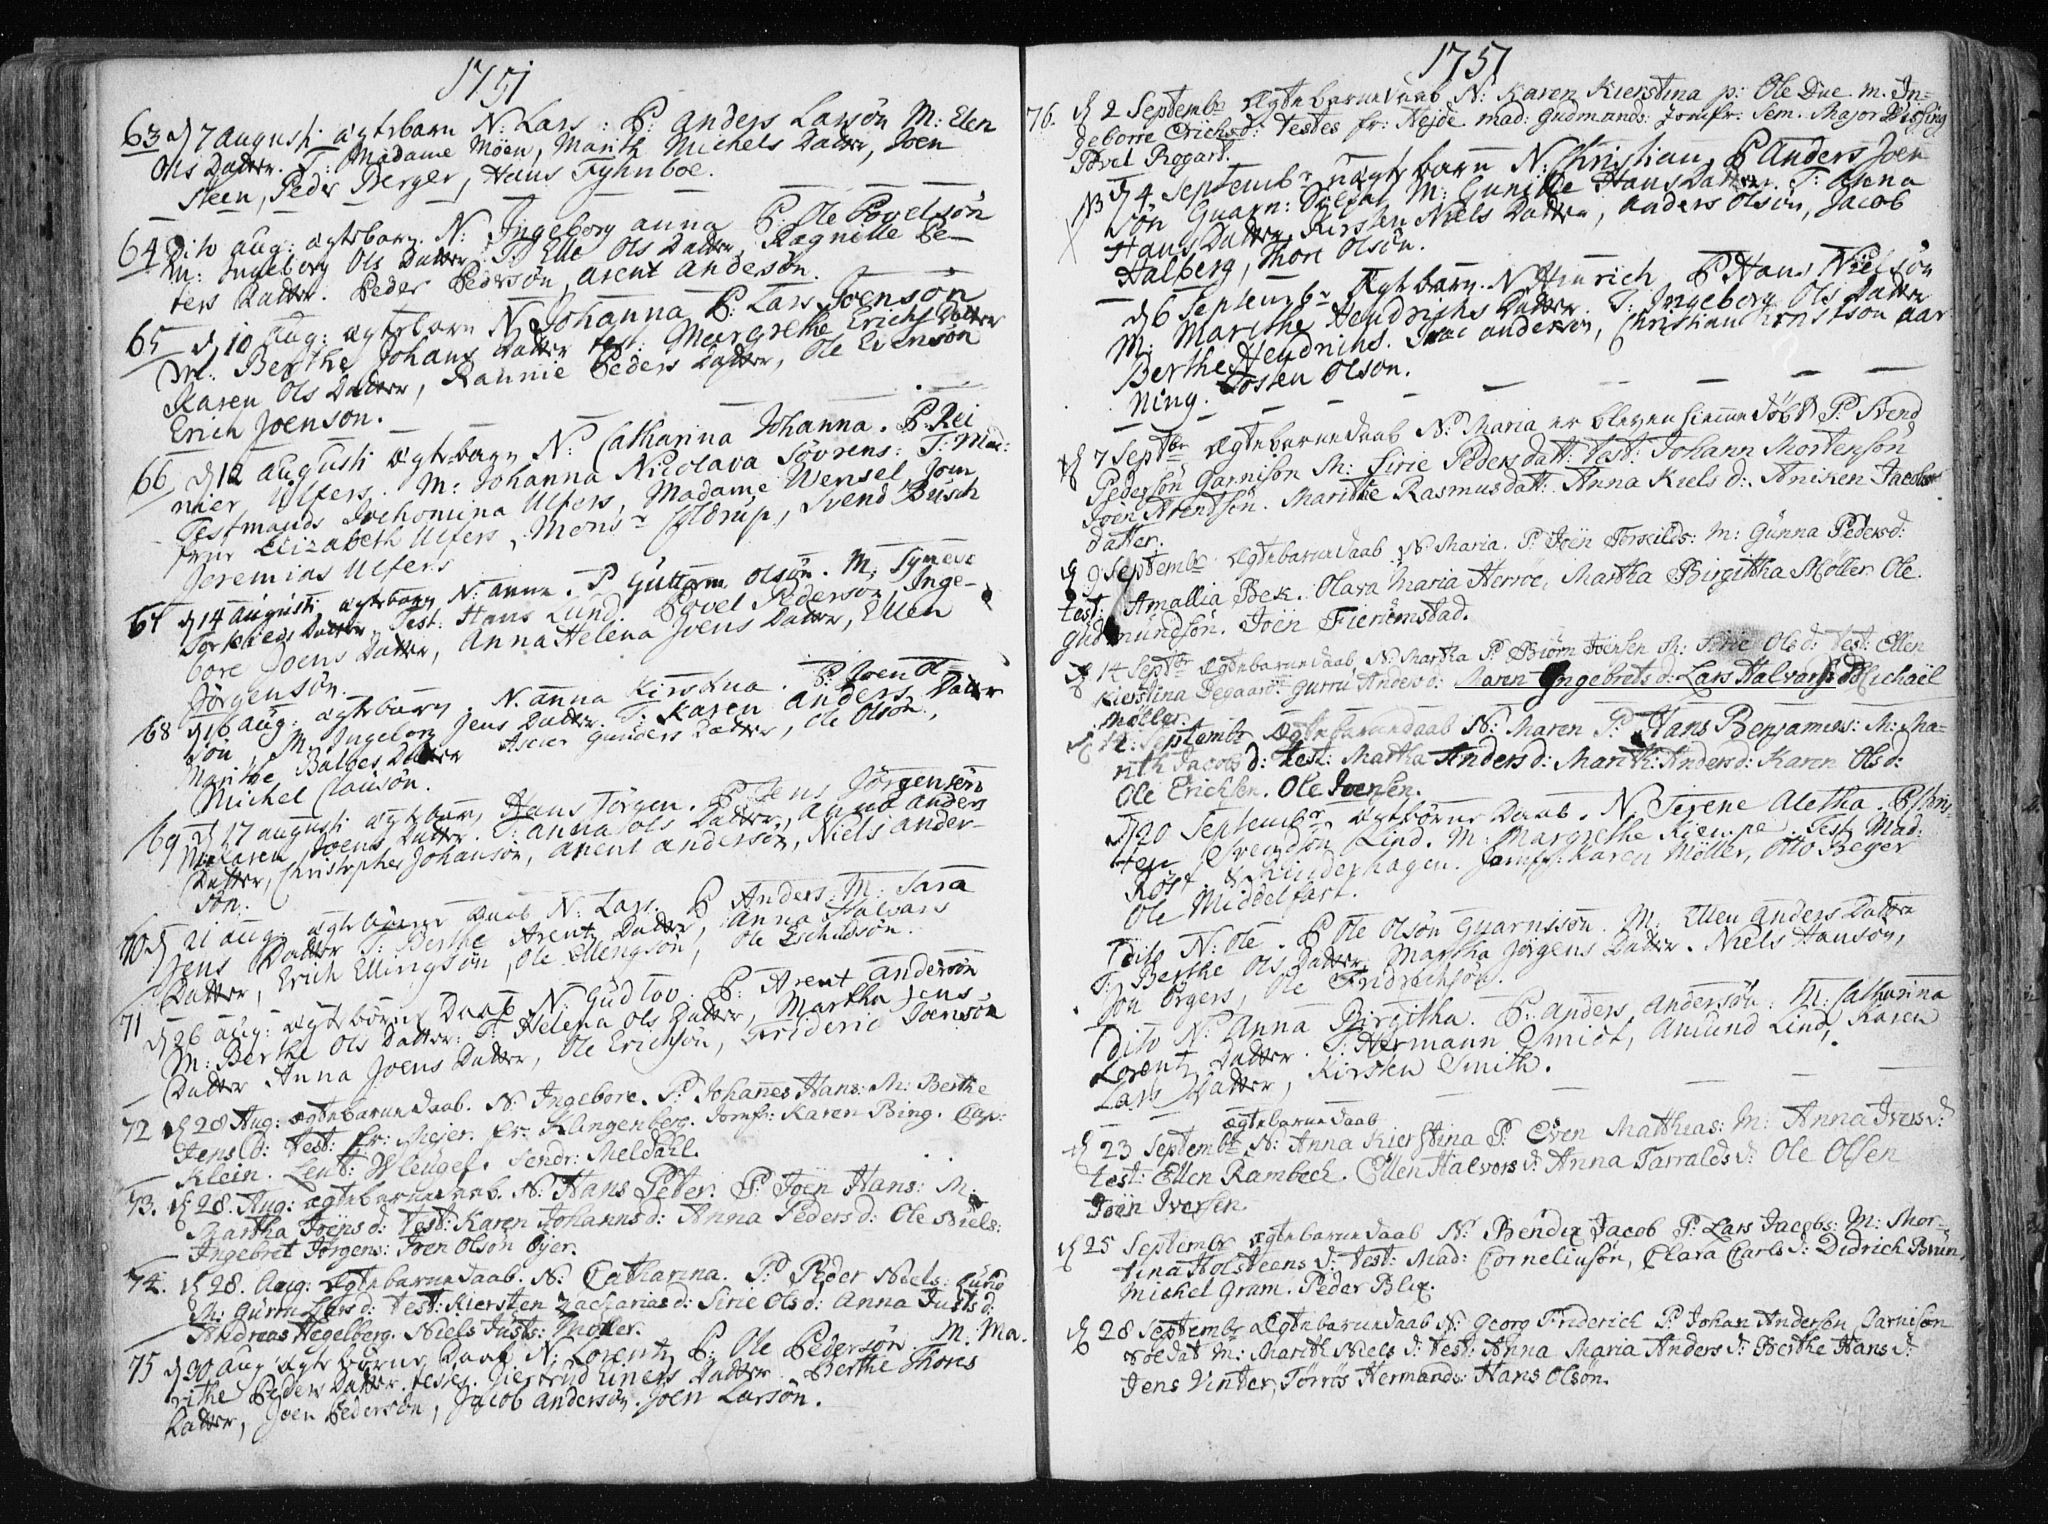 1751
63 d 7 augusti ægtebarn N: Lars: P: anders Larsøn M: Elen
Ols Datter. T: Madame Moen, Marith Michels Datter, Joen
Steen, Peder Berger, Hans Fyhnboe.
64 Dito aug: ægtebarn. N: Ingeborg anna P: Ole Povelsøn
M: Ingeborg Ols Datter. T: Elle Ols Datter, Ragnille Pe-
ters Datter. Peder Pedersøn, arent andersøn.
65 d 10 aug: ægtebarn N: Johanna P: Lars Joensøn
M: Berthe Johans Datter test: Margrethe Erichs Datter
Karen Ols Datter, Rannie Peders Datter, Ole Evensøn
Erich Joensøn.
66 d 12 augusti ægtebarn N: Catharina Johanna. P: Rei
nier Ulfers. M: Johanna Nicolava Søvrens: T: Mad:
Testmands Jochomina Ulfers, Madame Wensel, Jom
frue Elizabeth Ulfers, Mons: Coldrup, Svend Busch
Jeremias Ulfers
67 d 14 augusti ægtebarn N: anne. P Guttorm Olsøn. M: Synneve
Torkields Datter, Test: Hans Lund. Povel Pedersøn Inge-
bore Joens Datter, Anna Helena Joens Datter, Ellen
Jørgensøn.
68 d 16 aug: ægtebarn. N: anna Kirstina. P: Joen O-
søn, M: Ingeborg Jens Datter. T: Karen anders Datter
Marithe Balbes Datter Gunders Datter, Ole Olsøn,
Michel Clausøn.
69 d 17 augusti ægtebarn Hans Jørgen. P: Jens Jørgensøn
M: Karen Joens Datter. T: anna Ols Datter, anna anders
Datter, Christopher Johansøn, arent andersøn, Niels ander-
søn.
70 d 21 aug: ægte børne Daab N: Lars. P Anders: M: Sara
Jens Datter T: Berthe Arentz Datter, Anna Halvors
Datter, Erich Ellingsøn, Ole Ellengsøn, Ole Eschildsøn.
71 d 26 aug: ægte børne Daab N: Gudlov. P: Arent andersøn
M: Berthe Ols Datter. T: Helena Ols Datter, Martha Jens
Datter Anna Joens Datter, Ole Erichsøn, Frideric Joensøn
72 d 28 Aug: ægtebarnedaab. N: Ingebore. P: Johanes Hans: M: Berthe
Jens d: Test: fr: Meier. fr: Klingenberg. Jomfr: Karen Bing. Cap:
Klein. Leut: Wleugel. Sendr: Meldahl.
73. d 28. Aug: ægtebarnedaab. N: Hans Peter. P: Joen Hans: M:
Martha Joens d: Test: Karen Johanns d: Anna Peders d: Ole Niels:
Ingebret Jørgens: Joen Olsøn Øjer.
74. d 28. Aug: ægtebarnedaab. N: Catharina. P: Peder Niels: Lund
M: Guru Lars d: Test: Kiersten Zacharias d: Sirie Ols d: Anna Justs d:
Andreas Hegelberg. Niels Justs: Møller.
75 d 30 aug ægte børne Daab N: Lorentz P: Ole Pedersøn M. Ma.
rithe Peders Datter. testes Giertrud Einers Datter. Berthe Thores
Datter, Joen Pedersøn, Jacob andersøn. Joen Larsøn.
1751
76. d 2 Septembr ægtebarnedaab N: Karen Kierstina p: Ole Due. m. In-
geborre Erichsd: testes fr: Hejde mad: Gudmands: Jomfr: Sem. Major Bissing
Povel Rogart.
NB d 4 Septembr uægte barn N: Christian, P Anders Joen
søn Guarn: Soldat M: Gunille Hans Datter. T: Anna
Hans Datter, Kirsten Niels Datter, anders Olsøn, Jacob
Halberg, Thore Olsøn.
d 6 Septembr Ægtebarn. N: Hinrich P Hans Nielsøn
M: Marithe Hendrichs Datter. T: Ingeborg Ols Datter
Berthe Hendrichs. Isac andersøn, Christian Ernstsøn aar
ning. Tosten Olsøn.
d 7 Septbr Ægtebarnedaab N: Maria er bleven hiemmedøbt P: Svend
Pedersøn Garnison M: Sirie Peders datt: test: Johann Mortensøn
Joen Arendsøn. Marithe Rasmus datt: Anna Niels d: Aniken Jacobs
datter.
d 9 Septembr Ægtebarnedaab N: Maria. P: Joen Torkilds: M: Gunna Peders d:
test: Amallia Bek. Olava Maria Herrøe, Martha Birgitha Møller. Ole
Gudmundsøn. Joen Fieromstad.
d 14 Septbr Ægtebarnedaab, N: Martha P: Biørn Joensen M: Sirie Ols d: Test: Ellen
Kierstina Degaard: Gurru Anders d: Maren Ingebrets d: Lars Halvors: Michaël
Møller.
d 12: Septembr Ægtebarnedaab N: Maren P: Hans Benjamins: M: Ma-
rith Jacobs d: test: Martha Anders d: Marith Anders d: Karen Ols d:
Ole Erichsen. Ole Joensen.
d 20 Septembr ægte børne Daab. N: Serene Aletha. P Chris-
ten Svendsøn Lind. M: Margrethe Kiempe Test Mad:
Røst & Kindephagen. Jomfr: Karen Møller, Otto Beyer
Ole Middelfart.
Dito N: Ole. P Ole Olsøn Guarnison. M: Ellen anders Datter
T: Berthe Ols Datter, Martha Jørgens Datter. Niels Hansøn,
Jon Ørgers, Ole Fridrichsøn.
Dito N: Anna Birgitha. P: anders Andersøn. M: Catharina
Lorentz Datter. T: Hermann Smidt, Amund Lind, Karen
Lars Datter, Kirsten Smith.
ægtebarnedaab
d 23 Septembr N: Anna Kierstina P: Even Matthias: M: Anna Ivers d:
test: Ellen Rambech. Ellen Halvors d: Anna Tarralds d: Ole Olsen
Joen Iversen.
d 25 Septembr Ægtebarnedaab N: Bendix Jacob P: Lars Jacobs: M: Mor-
tina Holsteens d: test: Mad: Corneliusøn, Clara Carls d: Didrich Brun,
Michel Gram. Peder Blix.
d 28 Septembr Ægtebarnedaab N: Georg Friderich P: Johan Andersøn Garnison
Soldat M: Marith Niels d: test: Anna Maria Anders d: Berthe Hans d:
Jens Vinter, Tørris Hermands: Hans Olsøn.